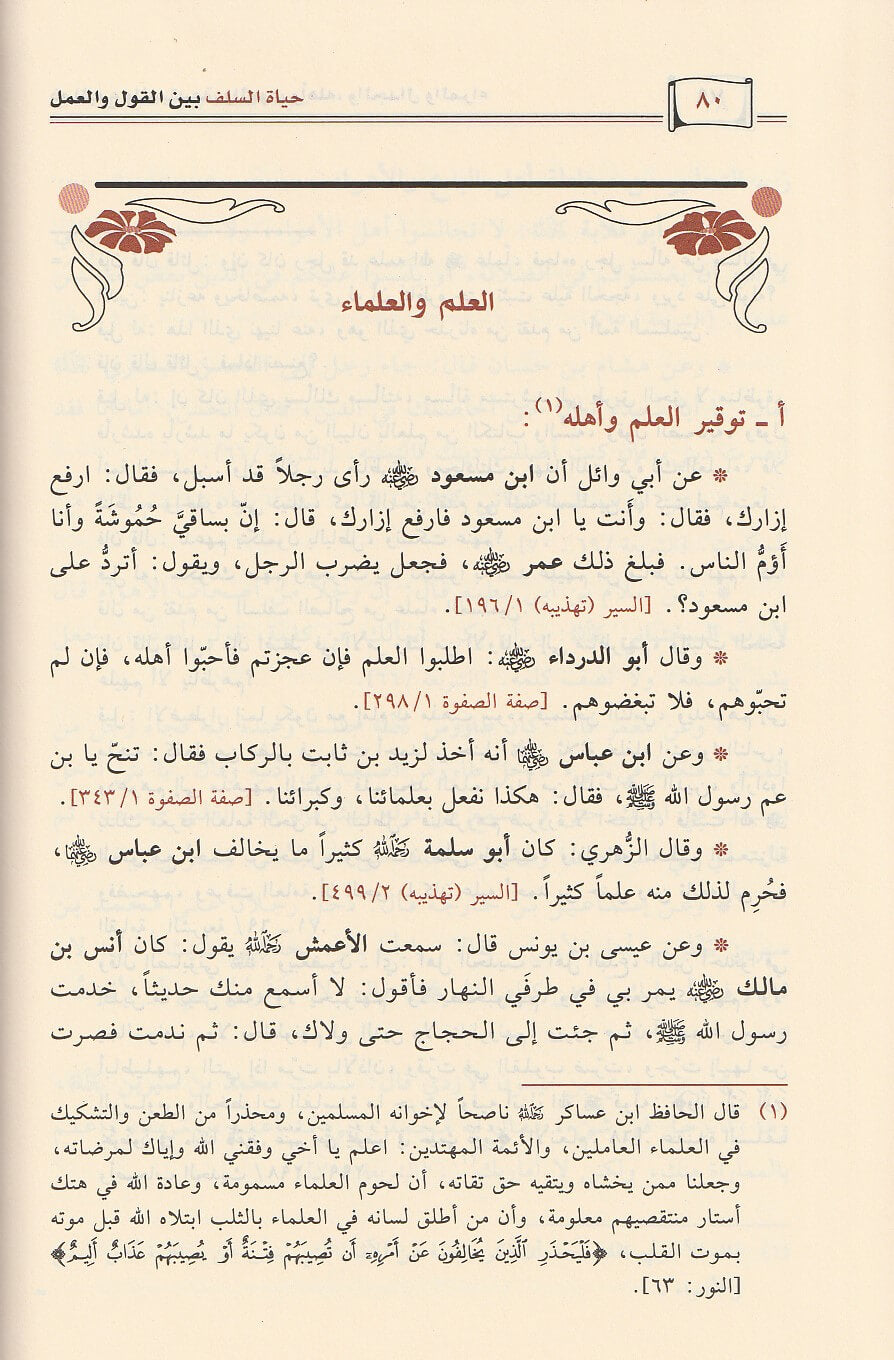 ٨٠
حياة السلف بين القول والعمل
العلم والعلماء
أ ـ توقير العلم وأهله(١):
* عن أبي وائل أن ابن مسعود رضي الله عنه رأى رجلاً قد أسبل، فقال: ارفع
إزارك، فقال: وأَنت يا ابن مسعود فارفع إزارك، قال: إنّ بساقيَّ حُمُوشَةً وأنا
أَؤمُّ الناس. فبلغ ذلك عمر رضي الله عنه، فجعل يضرب الرجل، ويقول: أتردُّ على
ابن مسعود؟. [السير (تهذيبه) ١/ ١٩٦].
* وقال أبو الدرداء رضي الله عنه: اطلبوا العلم فإن عجزتم فأحبّوا أهله، فإن لم
تحبّوهم، فلا تبغضوهم. [صفة الصفوة ١/ ٢٩٨].
* وعن ابن عباس رضي الله عنهما أنه أخذ لزيد بن ثابت بالركاب فقال: تنحّ يا بن
عم رسول الله ﷺ، فقال: هكذا نفعل بعلمائنا، وكبرائنا. [صفة الصفوة ١/ ٣٤٣].
* وقال الزُّهري: كان أبو سلمة رحمه الله كثيراً ما يخالف ابن عباس رضي الله عنهما،
فحُرِم لذلك منه علماً كثيراً. [السير (تهذيبه) ٢/ ٤٩٩].
* وعن عيسى بن يونس قال: سمعت الأعمش رحمه الله يقول: كان أنس بن
مالك رضي الله عنه يمر بي في طرفَي النهار فأقول: لا أسمع منك حديثاً، خدمت
رسول الله ﷺ، ثم جئت إلى الحجاج حتى ولاك، قال: ثم ندمت فصرت
(١) قال الحافظ ابن عساكر رحمه الله ناصحاً لإخوانه المسلمين، ومحذراً من الطعن والتشكيك
في العلماء العاملين، والأئمة المهتدين: اعلم يا أخي وفقني الله وإياك لمرضاته،
وجعلنا ممن يخشاه ويتقيه حق تقاته، أن لحوم العلماء مسمومة، وعادة الله في هتك
أستار منتقصيهم معلومة، وأن من أطلق لسانه في العلماء بالثلب ابتلاه الله قبل موته
بموت القلب، ﴿فَلْيَحْذَرِ ٱلَّذِينَ يُخَالِفُونَ عَنْ أَمْرِهِۦٓ أَن تُصِيبَهُمْ فِتْنَةٌ أَوْ يُصِيبَهُمْ عَذَابٌ أَلِيمٌ﴾
[النور: ٦٣].